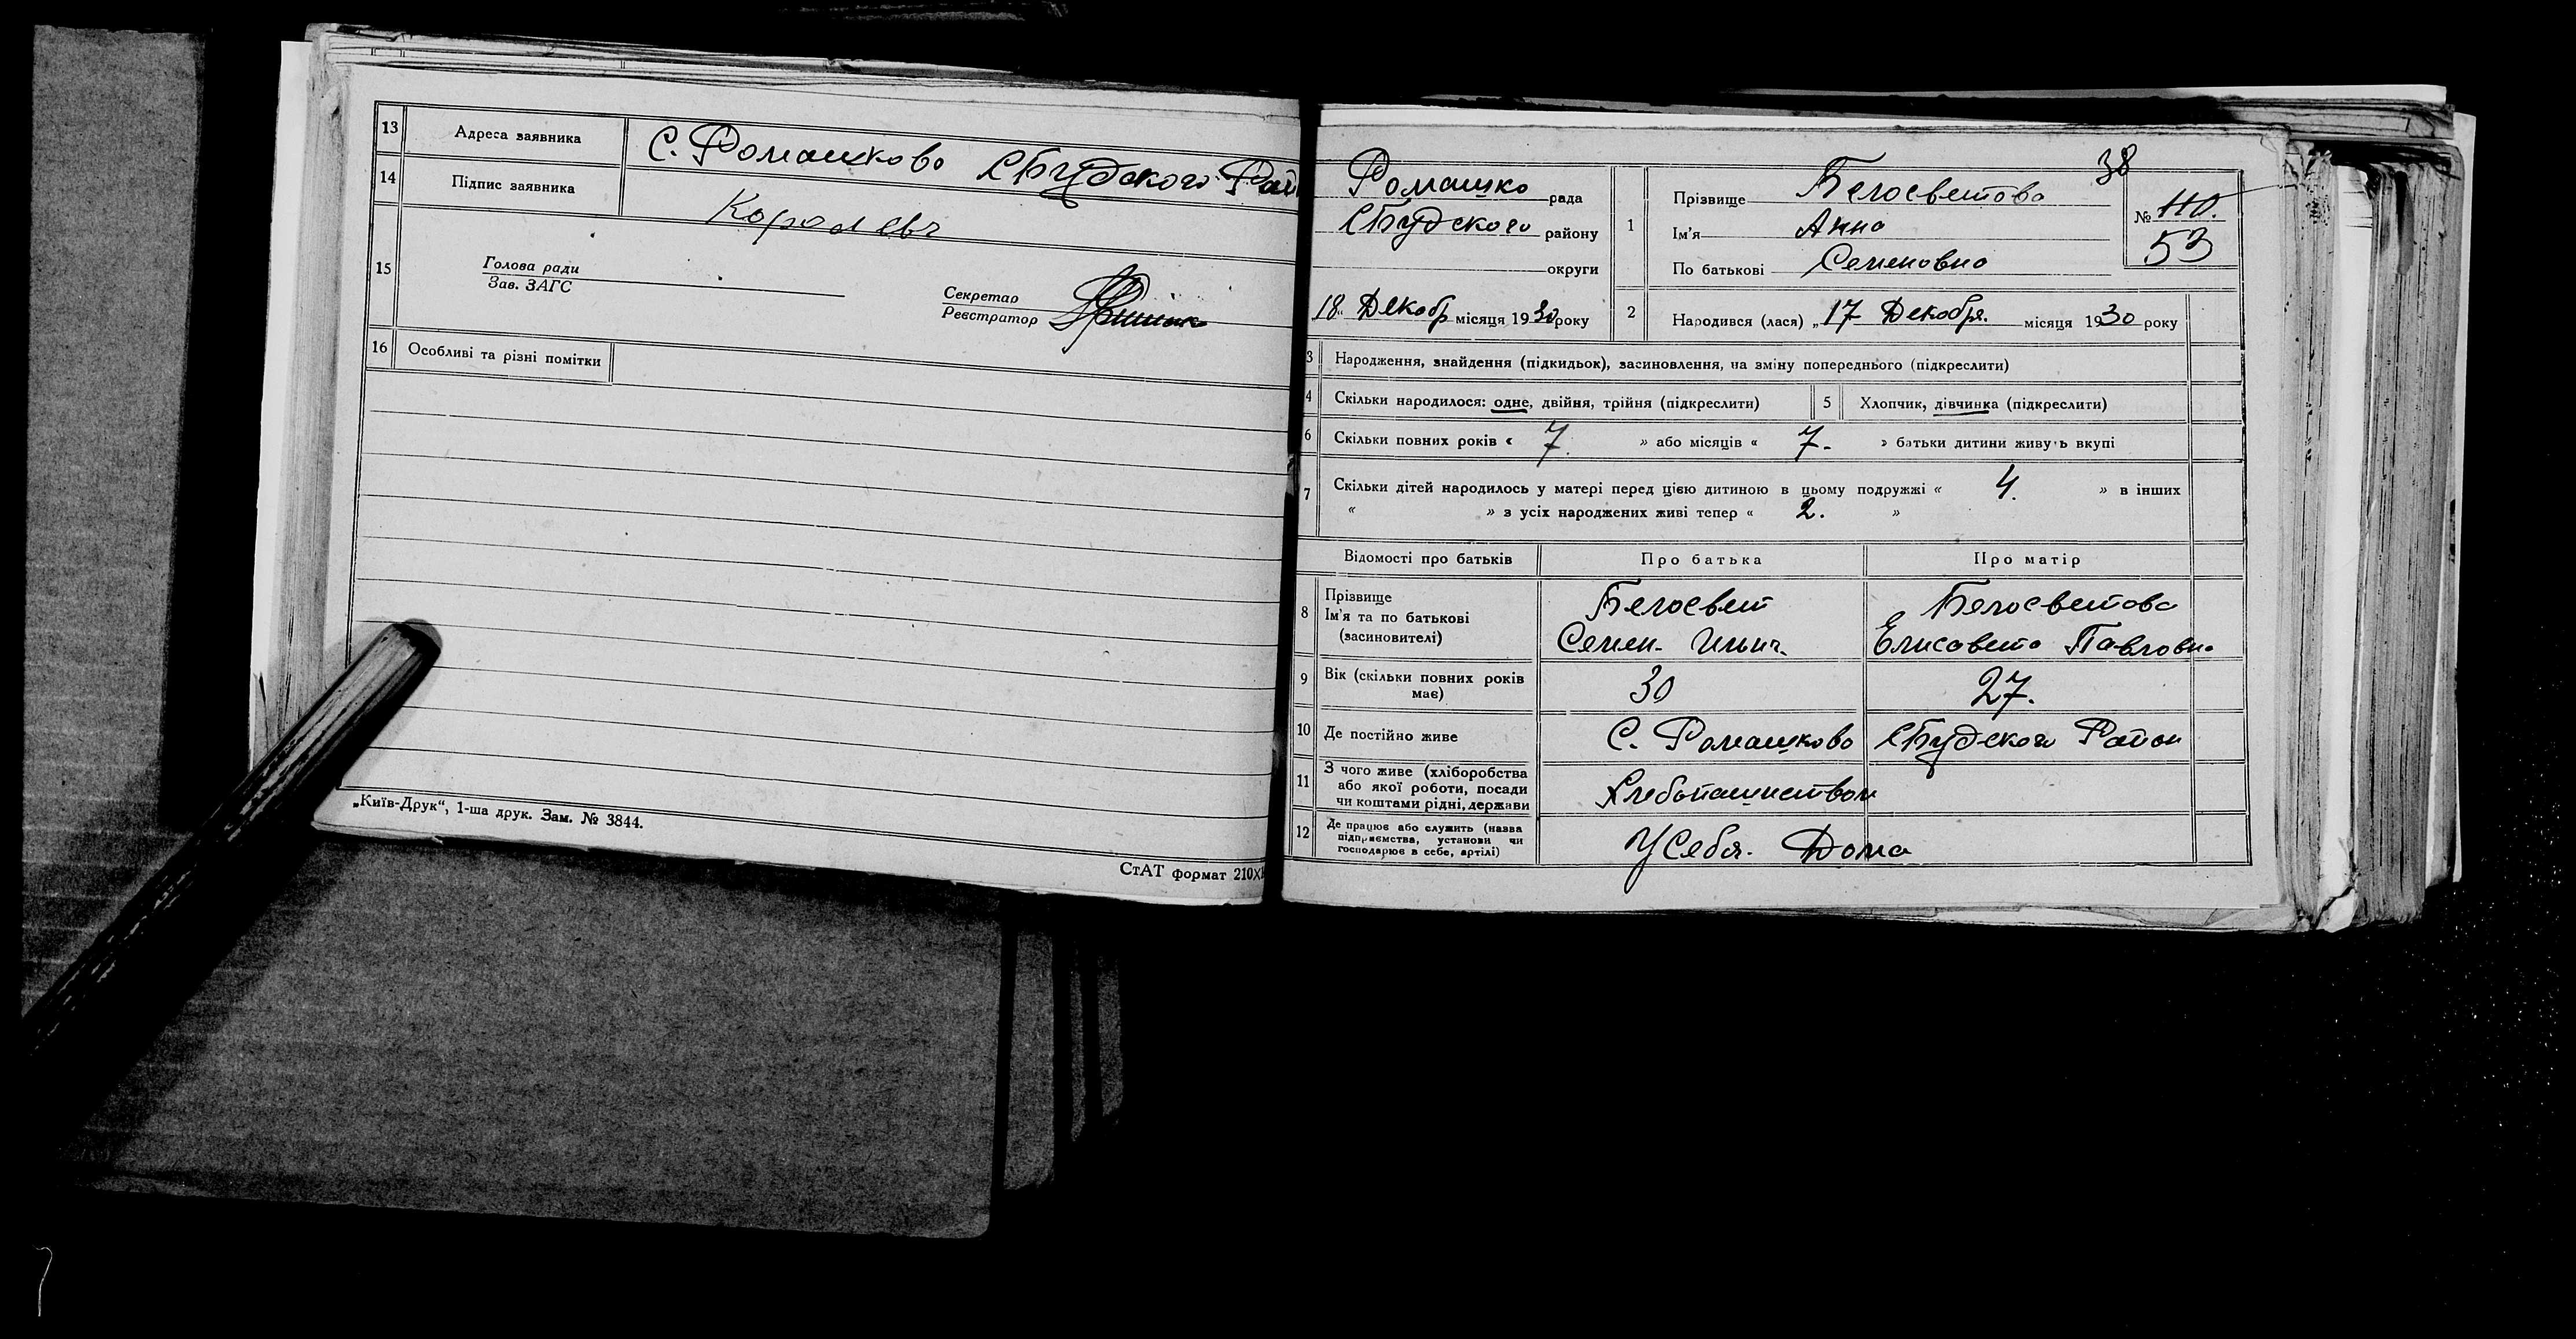 13 Адреса заявника С. Ромашково СБудского Рай
14 Підпис заявника Королевъ
15 Голова ради
Зав. ЗАГС
Секретар
Реєстратор
16 Особливі та різні помітки
„Київ-Друк“, 1-ша друк. Зам. № 3844.
СтАТ формат 210×
38
Ромашко рада
СБудского району
округи
18 Декабр місяця 1930 року
1 Прізвище Белосветова
Ім'я Анна
По батькові Семеновна
№ 110.
53
2 Народився (лася) „17 Декобря. місяця 1930 року
3 Народження, знайдення (підкидьок), засиновлення, на зміну попереднього (підкреслити)
4 Скільки народилося: одне, двійня, трійня (підкреслити) 5 Хлопчик, дівчинка (підкреслити)
6 Скільки повних років « 7. » або місяців « 7. » батьки дитини живуть вкупі
7 Скільки дітей народилось у матері перед цією дитиною в цьому подружжі « 4. » в інших
« » з усіх народжених живі тепер « 2. »
Відомості про батьків Про батька Про матір
8 Прізвище
Ім'я та по батькові
(засиновителі)
Белосвет
Семен. Ильич.
Белосветова
Елисавета Павловна
9 Вік (скільки повних років
має) 30 27.
10 Де постійно живе С. Ромашково СБудского Район
11 З чого живе (хліборобства
або якої роботи, посади
чи коштами рідні, держави
Хлебопашеством
12 Де працює або служить (назва
підприємства, установи чи
господарює в себе, артілі)
У Себя. Дома